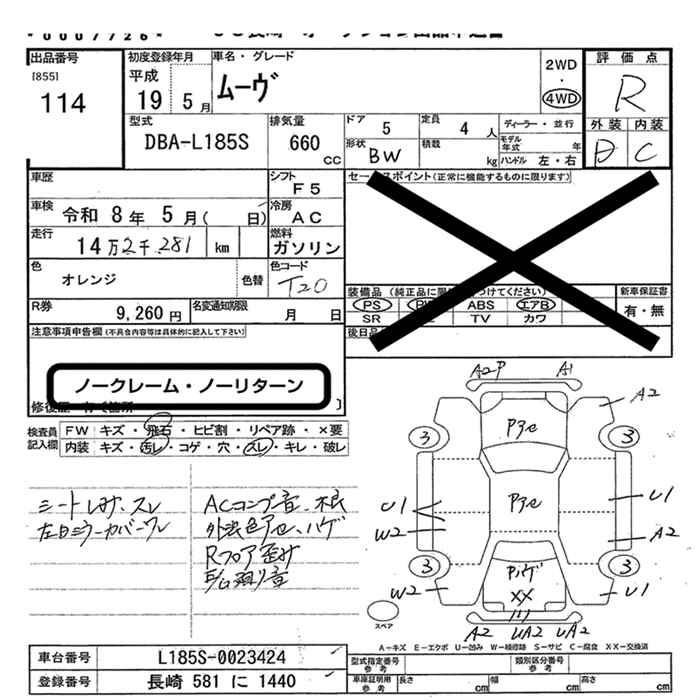 出品番号
[855]
114
初度登録年月
平成
19 5月
車名・グレード
ムーヴ
2WD
・
4WD
評価点
R
外装 内装
D C
型式
DBA-L185S
排気量
660
CC
ドア 5
定員 4 人
形状 BW
積載 kg
ディーラー・並行
モデル年式 年
ハンドル 左・右
車歴
シフト
F5
車検 令和 8年 5月( 日)
冷房
AC
走行 14万2千281 km
燃料
ガソリン
色 オレンジ
色替
色コード
T20
R券 9,260 円
名変通知期限 月 日
セールスポイント(正常に機能するものに限ります)
装備品
PS ABS エアB
SR TV カワ
新車保証書
有・無
注意事項申告欄(不具合内容等は具体的に記入して下さい)
ノークレーム・ノーリターン
検査員記入欄
FW キズ・飛石・ヒビ割・リペア跡・×要
内装 キズ・汚レ・コゲ・穴・スレ・キレ・破レ
シート スレ
左ミラーカバーワレ
ACコンプ音
外装色アセ、ハゲ
Rフロア歪み
A2P A1
A2
3 3
Pアセ
Pアセ
U1
W2
U1
A2
3 3
Pハゲ
XX
W2
U1
A2 UA2 UA2
スペア
A-キズ E-エクボ U-凹み W-補修跡 S-サビ C-腐食 XX-交換済
車台番号 L185S-0023424
登録番号 長崎 581 に 1440
型式指定番号
参考
類別区分番号
参考
車庫証明用
参考
長さ cm
幅 cm
高さ cm